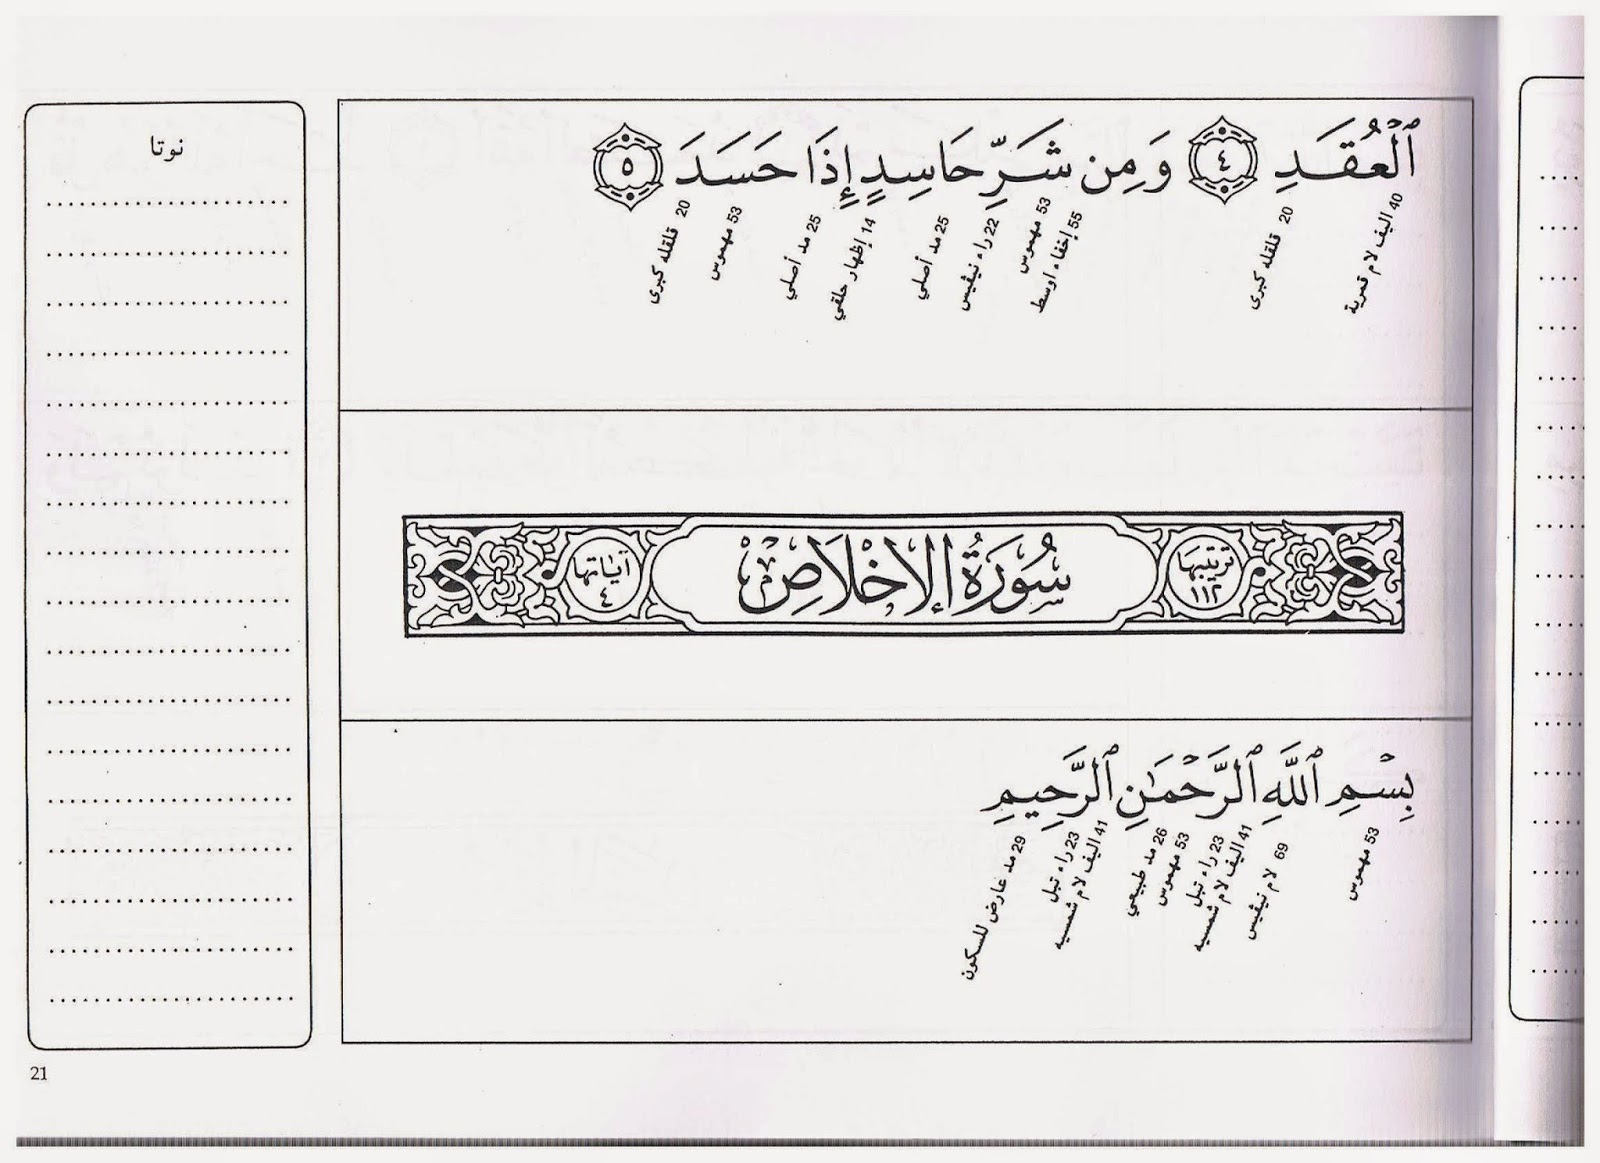 ٱلْعُقَدِ ٤ وَمِن شَرِّ حَاسِدٍ إِذَا حَسَدَ ٥
40 اليف لام قمرية
20 قلقله كبرى
55 إخفاء اوسط
53 مهموس
22 راء نيڤيس
25 مد أصلي
14 إظهار حلقي
25 مد أصلي
53 مهموس
20 قلقله كبرى
ترتيبها ١١٢
سُورَةُ الإِخْلَاصِ
آياتها ٤
بِسْمِ ٱللَّهِ ٱلرَّحْمَٰنِ ٱلرَّحِيمِ
53 مهموس
69 لام نيڤيس
41 اليف لام شمسيه
23 راء تبل
53 مهموس
26 مد طبيعي
41 اليف لام شمسيه
23 راء تبل
29 مد عارض للسكون
نوتا
21